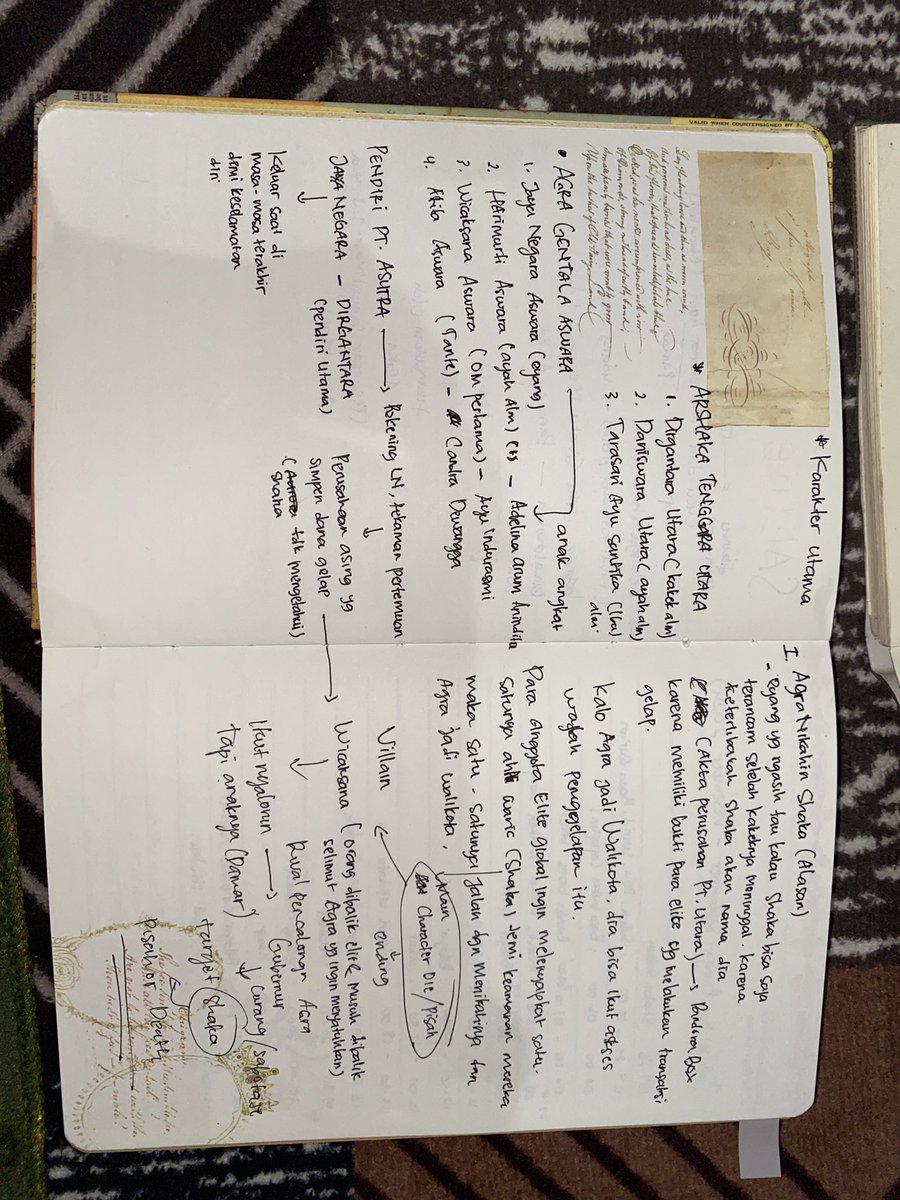 VALID WHEN COUNTERSIGNED BY
* Karakter utama
* ARSHAKA TENGGARA UTARA
1. Dirgantara Utara (kakek alm)
2. Daniswara Utara (ayah alm)
3. Tarasari Ayu Santika (Ibu)
alm.
• AGRA GENTALA ASWARA → anak angkat
1. Jaya Negara Aswara (eyang)
2. Harimurti Aswara (ayah alm) – Adelina arum Anindita
3. Wicaksana Aswara (OM pertama) – Ayu Indurasmi
4. Aswara (Tante) – Candra Dewangga
PENDIRI PT. → Rekening LN, tekaman pertemuan
JAYA NEGARA – DIRGANTARA
(pendiri utama)
Perusahaan asing yg
simpen dana gelap →
( tdk mengetahui)
shaka
Keluar saat di
masa-masa terakhir
demi keselamatan
diri
I. Agra Nikahin Shaka (Alasan)
- eyang yg ngasih tau kalau Shaka bisa saja
terancam setelah kakeknya meninggal. karena
keterlibatan shaka akan nama dia
(Akta perusahan PT. Utara) →
karena memiliki bukti para elite yg melakukan transaksi
gelap.
Kalo Agra jadi Walikota, dia bisa ikut akses
wadah penggelapan itu.
Para anggota Elite global ingin melenyapkat satu-
satunya ahli waric (Shaka) demi keamanan mereka
maka satu-satunya jalan dgn menikahinya dan
Agra jadi walikota,
Character DIE/pisah
Villain
ending
Wicaksana (orang dibalik elite, musuh dibalik
selimut Agra yg ingin menjatuhkan)
Rival pencalongn Agra
Gubernur
Ikut ngalonin →
Tapi anaknya (Damar)
Curang/sabotase
target shaka
Death